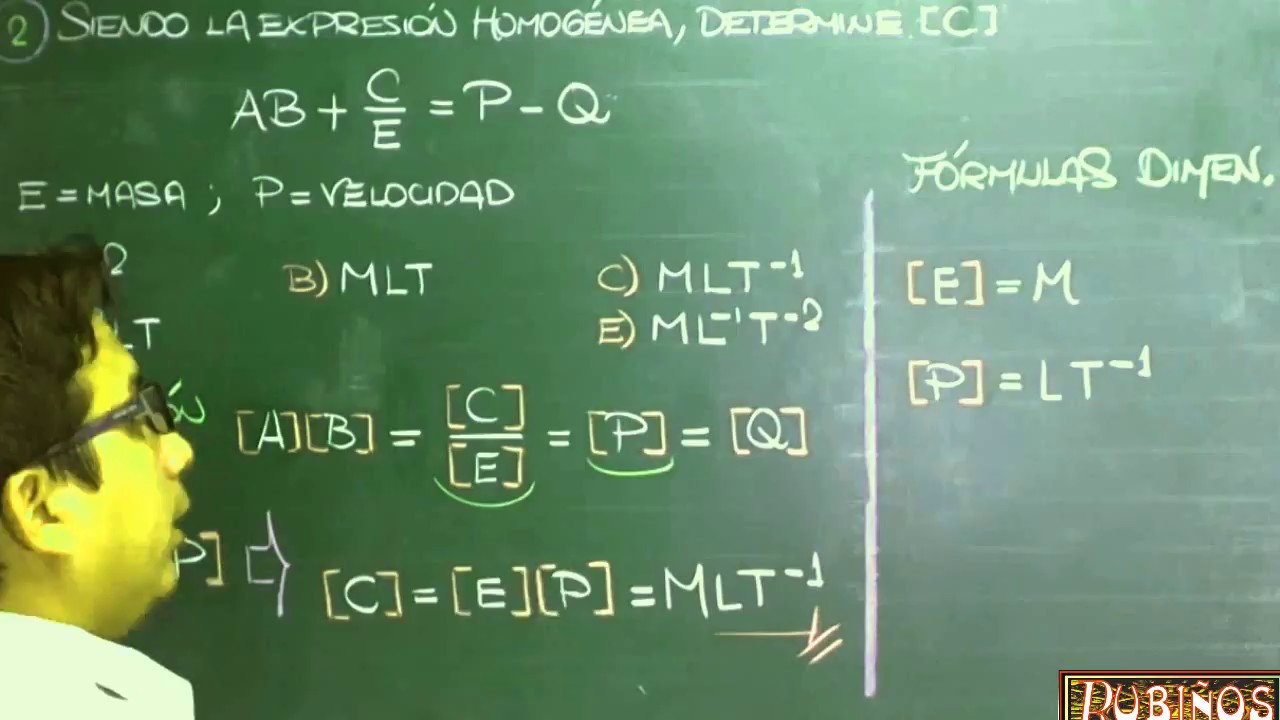 2) SIENDO LA EXPRESIÓN HOMOGÉNEA, DETERMINE [C]
AB + C/E = P - Q
E = MASA ; P = VELOCIDAD
2
B) MLT
C) MLT⁻¹
LT
E) ML⁻¹T⁻²
[A][B] = [C]/[E] = [P] = [Q]
P] ⇒ [C] = [E][P] = MLT⁻¹
FÓRMULAS DIMEN.
[E] = M
[P] = LT⁻¹
RUBIÑOS